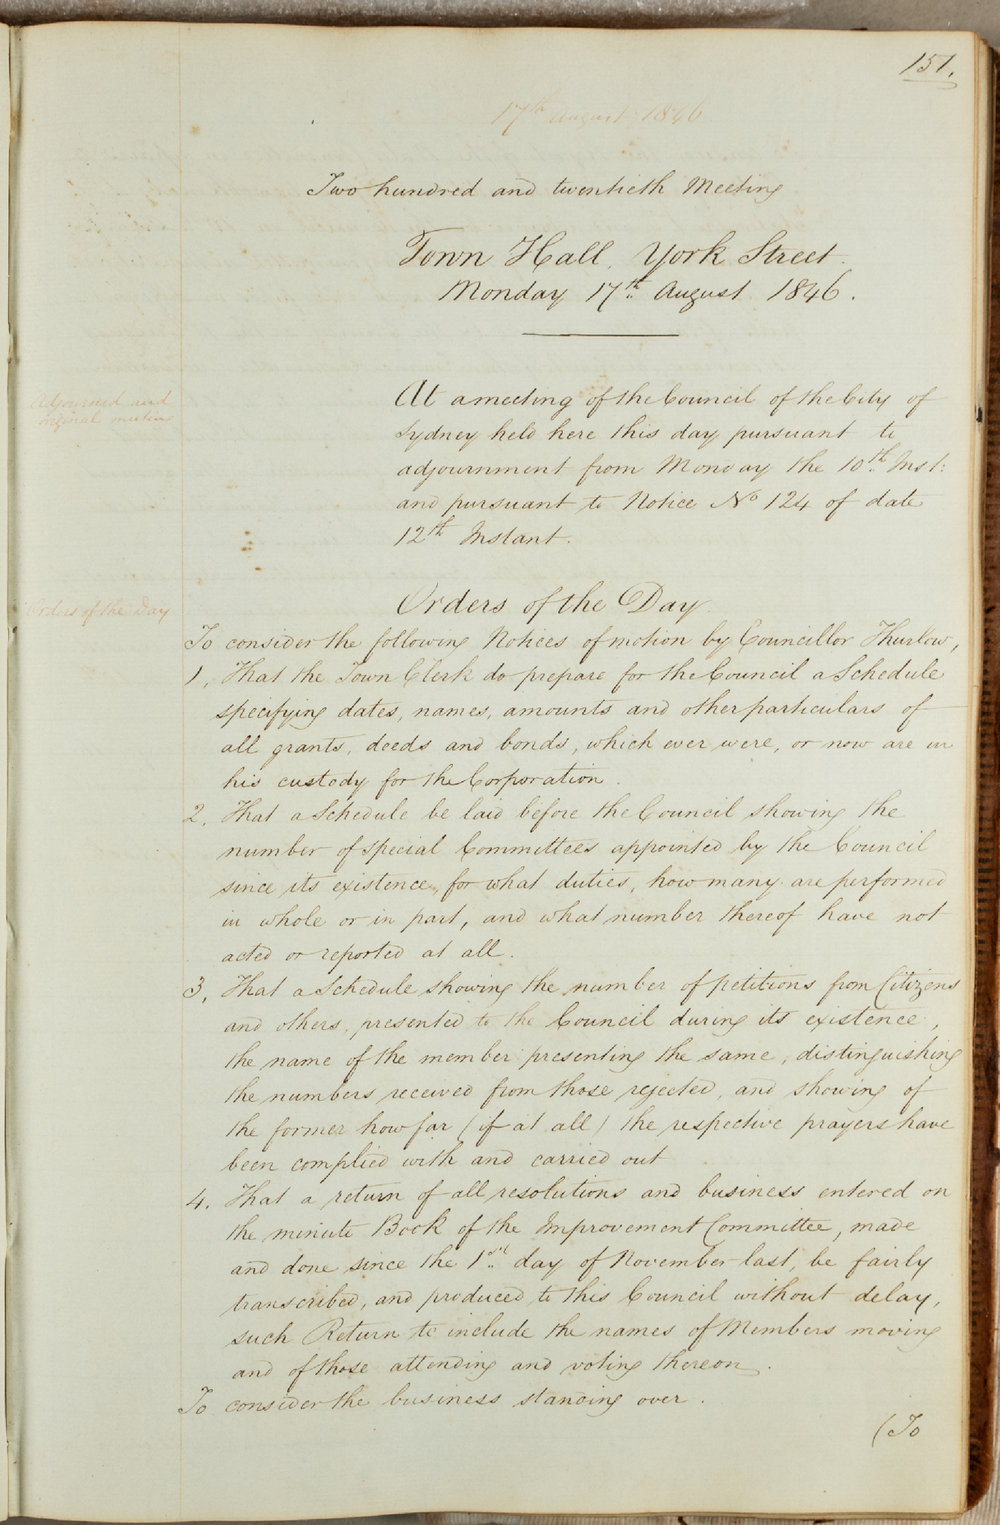 151.
17th August 1846
Two hundred and twentieth Meeting
Town Hall, York Street.
Monday 17th August 1846.
Adjourned and
original meetin
At a meeting of the Council of the City of
Sydney held here this day pursuant to
adjournment from Monday the 10th Inst:
and pursuant to Notice No 124 of date
12th Instant.
Orders of the Day
Orders of the Day.
To consider the following Notices of motion by Councillor Thurlow,
1. That the Town Clerk do prepare for the Council a Schedule
specifying dates, names, amounts and other particulars of
all grants, deeds and bonds, which ever were, or now are in
his custody for the Corporation.
2. That a Schedule be laid before the Council showing the
number of special Committees appointed by the Council
since its existence, for what duties, how many are performed
in whole or in part, and what number thereof have not
acted or reported at all.
3. That a Schedule showing the number of petitions from Citizens
and others, presented to the Council during its existence,
the name of the member presenting the same, distinguishing
the numbers received from those rejected, and showing of
the former how far (if at all) the respective prayers have
been complied with and carried out
4. That a return of all resolutions and business entered on
the minute Book of the Improvement Committee, made
and done since the 1st day of November last, be fairly
transcribed, and produced to this Council without delay,
such Return to include the names of Members moving
and of those attending and voting thereon.
To consider the business standing over.
(To